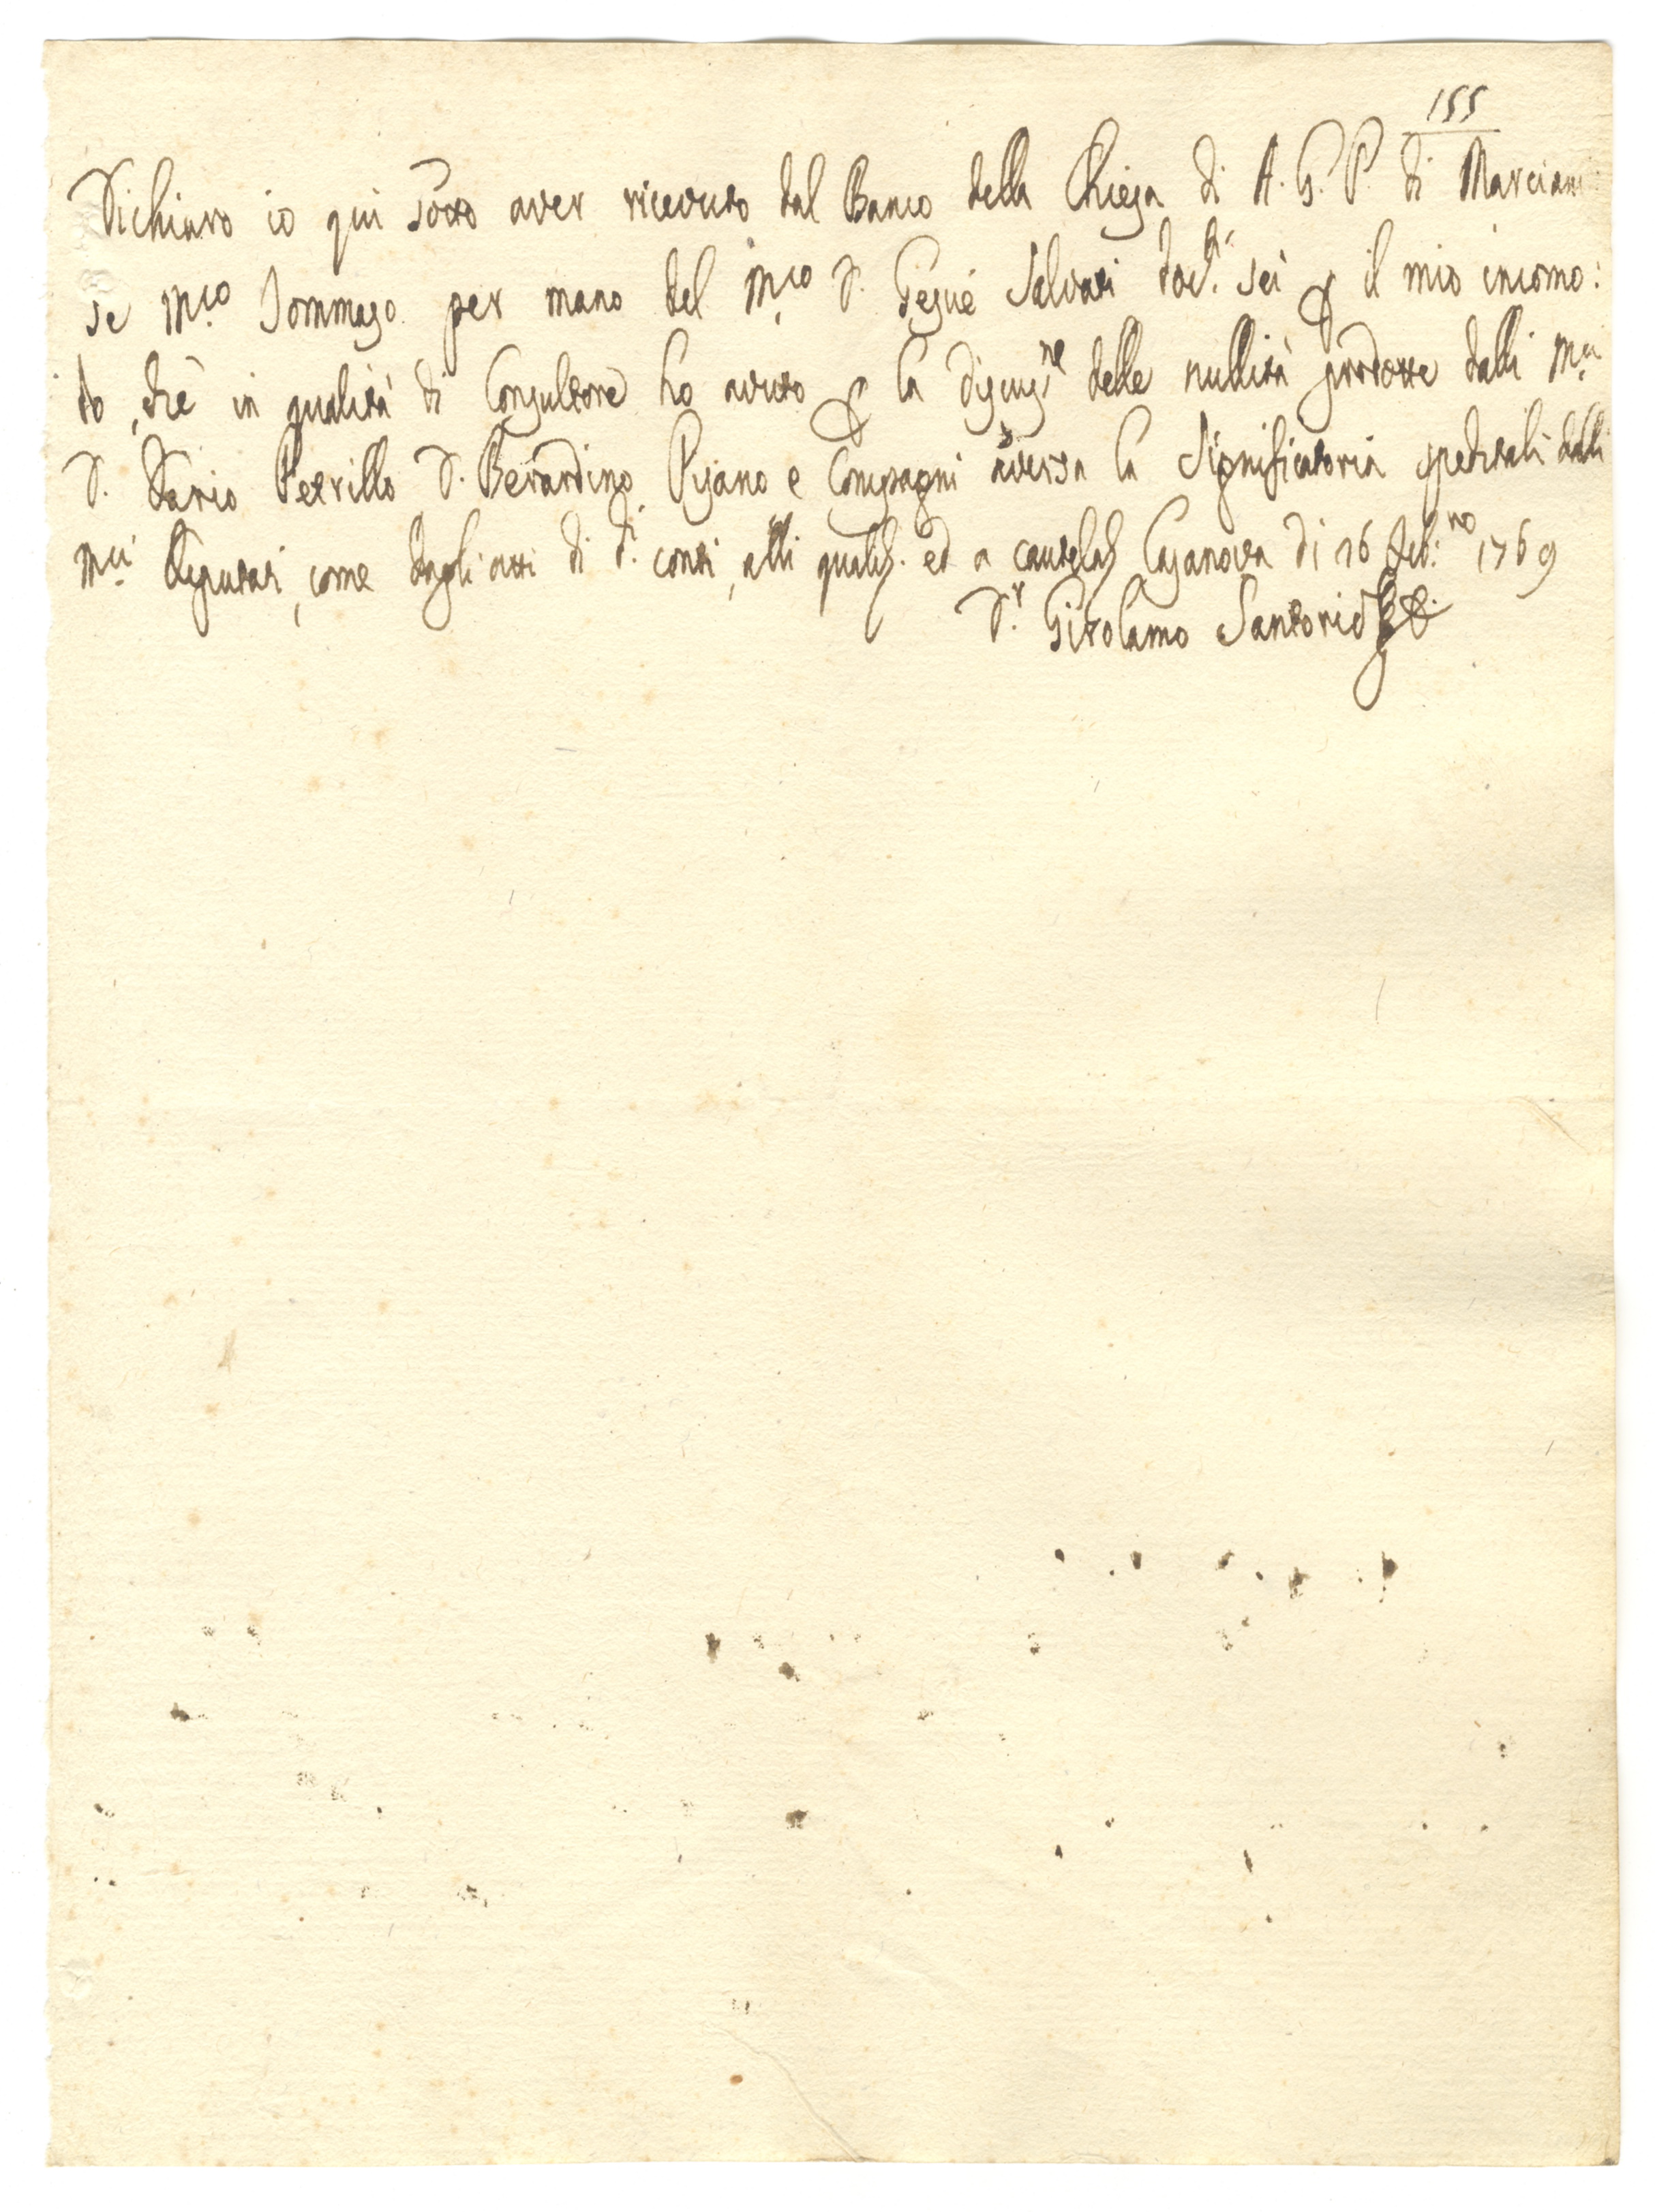 155
Dichiaro io qui sotto aver ricevuto dal Banco della Chiesa di A. G. P. di Marciani:
se M.co Tommaso per mano del M.co D. Gesué Salvati doc.ti sei p il mio incomo:
do, che in qualità di Consultore ho avuto p la discuss.ne delle nullità prodotte dalli M.ci
D. Dario Petrillo D. Berardino Pisano e Compagni adversa la Significatoria speditali dalli
M.ci Deputati, come dagli atti di d.i conti, alli quali. ed a cautela Casanova di 26 Feb:ro 1769
D.r Girolamo Santorio